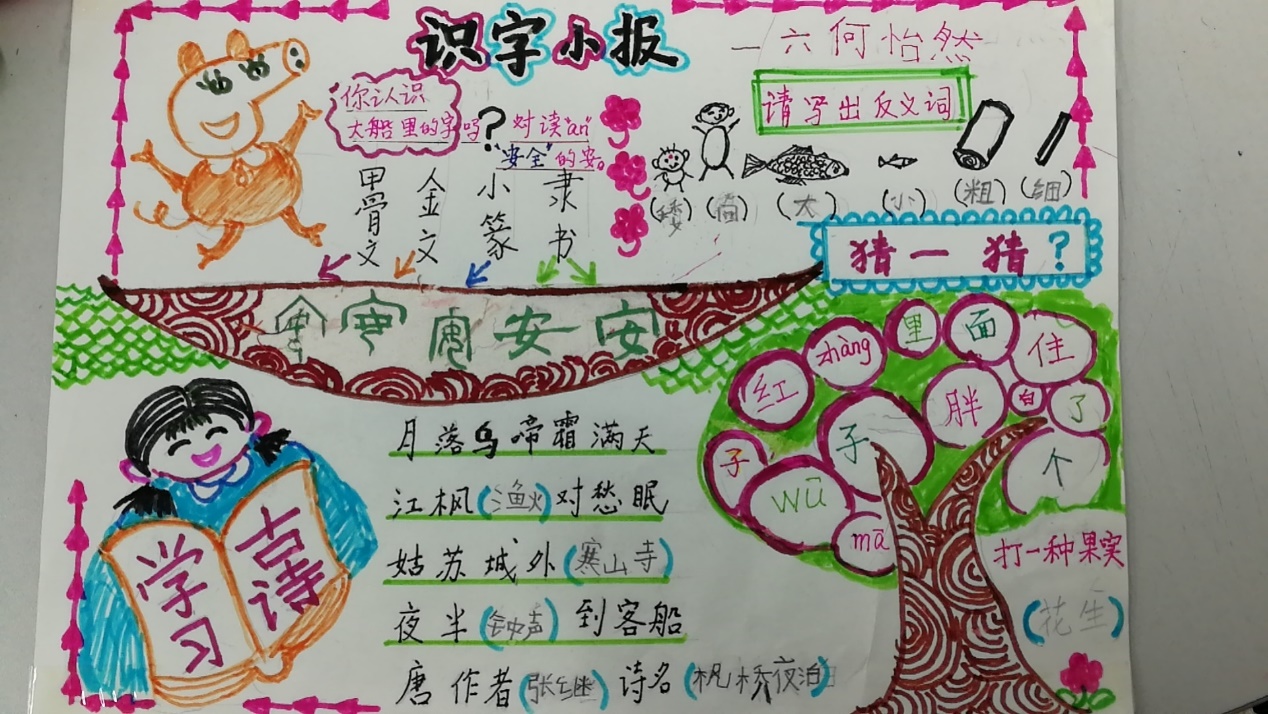 识字小报
一六何怡然
请写出反义词
你认识
大船里的字吗？对读"ān"
"安全"的安。
甲骨文 金文 小篆 隶书
(矮) (高) (大) (小) (粗) (细)
猜一猜？
安 安 安 安 安
红 zhàng 里 面 住
子 胖 白 了
子 wū 个
mā
打一种果实
(花生)
学习
古诗
月落乌啼霜满天
江枫(渔火)对愁眠
姑苏城外(寒山寺)
夜半(钟声)到客船
唐 作者(张继) 诗名(枫桥夜泊)